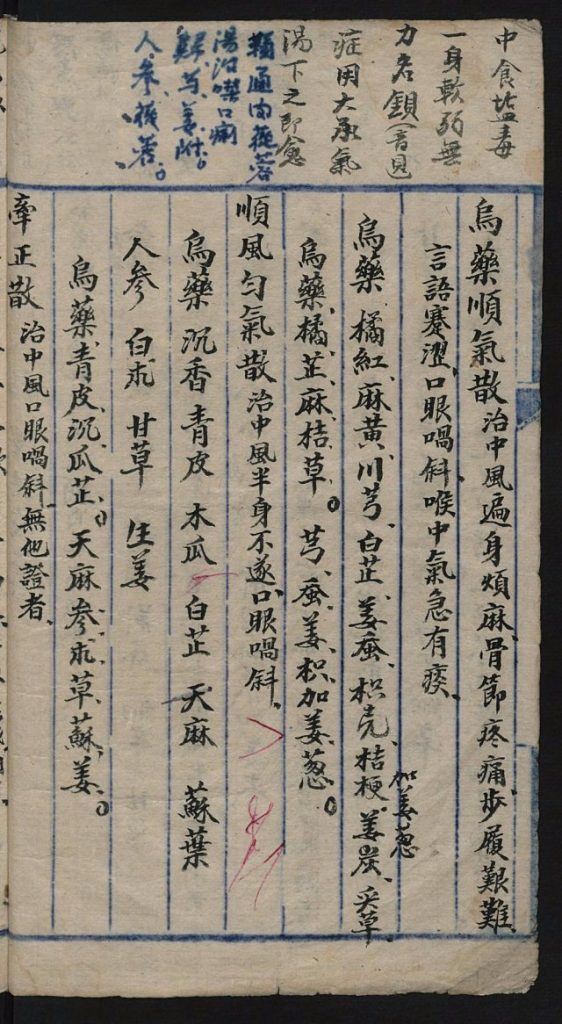 中食塩毒
一身軟弱無
力名鎖(音見)
症用大承氣
湯下之即愈
通肉蓯蓉
湯治喫口痢
姜附。
人参蓯蓉。
烏藥順氣散治中風遍身煩麻、骨節疼痛、步履艱難、
言語蹇澀、口眼喎斜、喉中氣急有痰、
烏藥、橘紅、麻黃、川芎、白芷、姜蚕、枳壳、桔梗、姜炭、炙草
加姜葱
烏藥、橘、芷、麻、桔、草。芎、蚕、姜、枳、加姜、葱。
順風勻氣散治中風半身不遂、口眼喎斜、
烏藥 沉香 青皮 木瓜 白芷 天麻 蘇葉
人参 白朮 甘草 生姜
烏藥、青皮、沉、瓜、芷。天麻、参、朮、草、蘇、姜。
牽正散治中風口眼喎斜、無他證者、